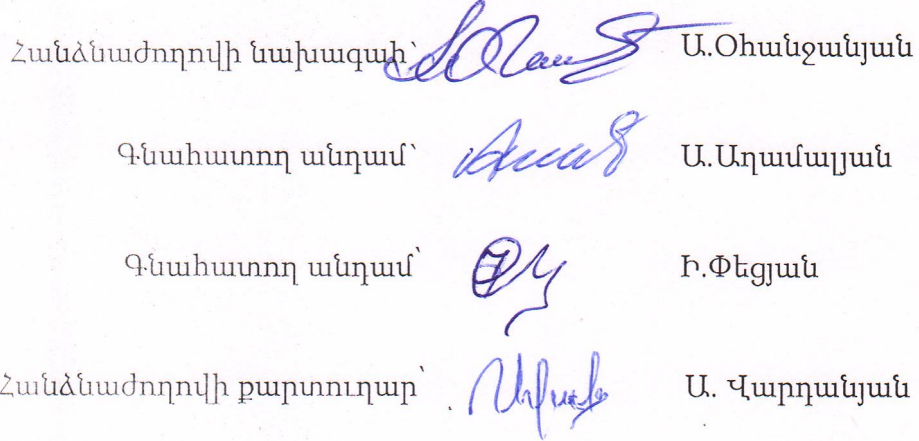 Հանձնաժողովի նախագահ՝ Ա.Օհանջանյան
Գնահատող անդամ՝ Ա.Աղամալյան
Գնահատող անդամ՝ Ի.Փեցյան
Հանձնաժողովի քարտուղար՝ Ա. Վարդանյան